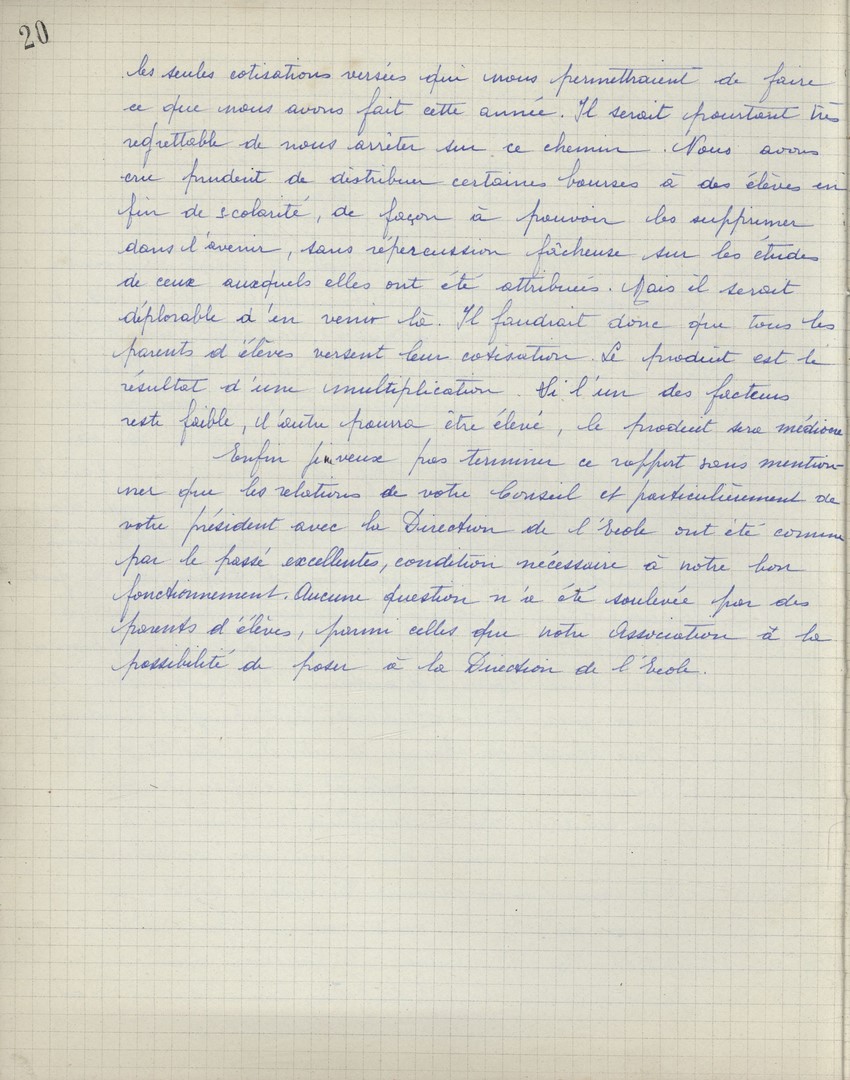 20
les seules cotisations versées qui nous permettraient de faire
ce que nous avons fait cette année. Il serait pourtant très
regrettable de nous arrêter sur ce chemin. Nous avons
cru prudent de distribuer certaines bourses à des élèves en
fin de scolarité, de façon à pouvoir les supprimer
dans l'avenir, sans répercussion fâcheuse sur les études
de ceux auxquels elles ont été attribuées. Mais il serait
déplorable d'en venir là. Il faudrait donc que tous les
parents d'élèves versent leur cotisation. Le produit est le
résultat d'une multiplication. Si l'un des facteurs
reste faible, l'autre pourra être élevé, le produit sera médiocre
Enfin je veux pas terminer ce rapport sans mention-
ner que les relations de votre Conseil et particulièrement de
votre président avec la Direction de l'Ecole ont été comme
par le passé excellentes, condition nécessaire à notre bon
fonctionnement. Aucune question n'a été soulevée par des
parents d'élèves, parmi celles que notre Association à la
possibilité de poser à la Direction de l'Ecole.